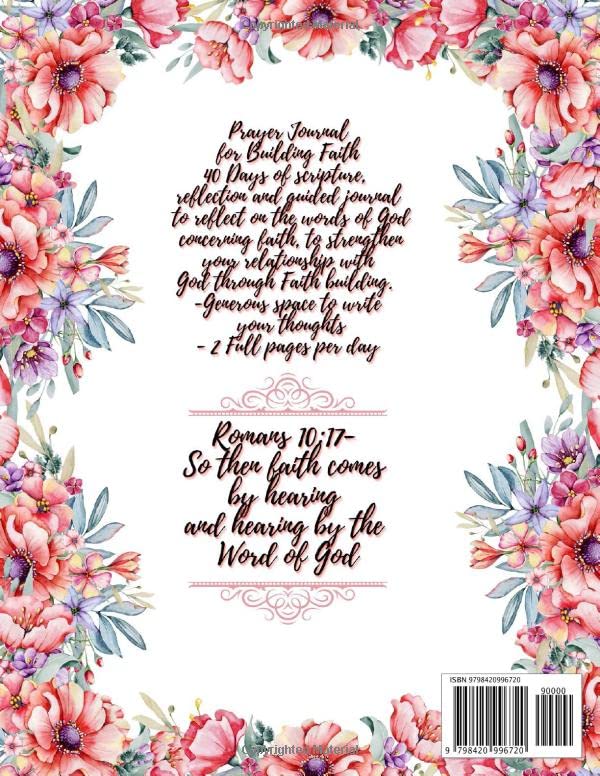 Copyrighted Material
Prayer Journal
for Building Faith
40 Days of scripture,
reflection and guided journal
to reflect on the words of God
concerning faith, to strengthen
your relationship with
God through Faith building.
-Generous space to write
your thoughts
- 2 Full pages per day
Romans 10:17-
So then faith comes
by hearing
and hearing by the
Word of God
ISBN 9798420996720
90000
9 798420 996720
Copyrighted Material